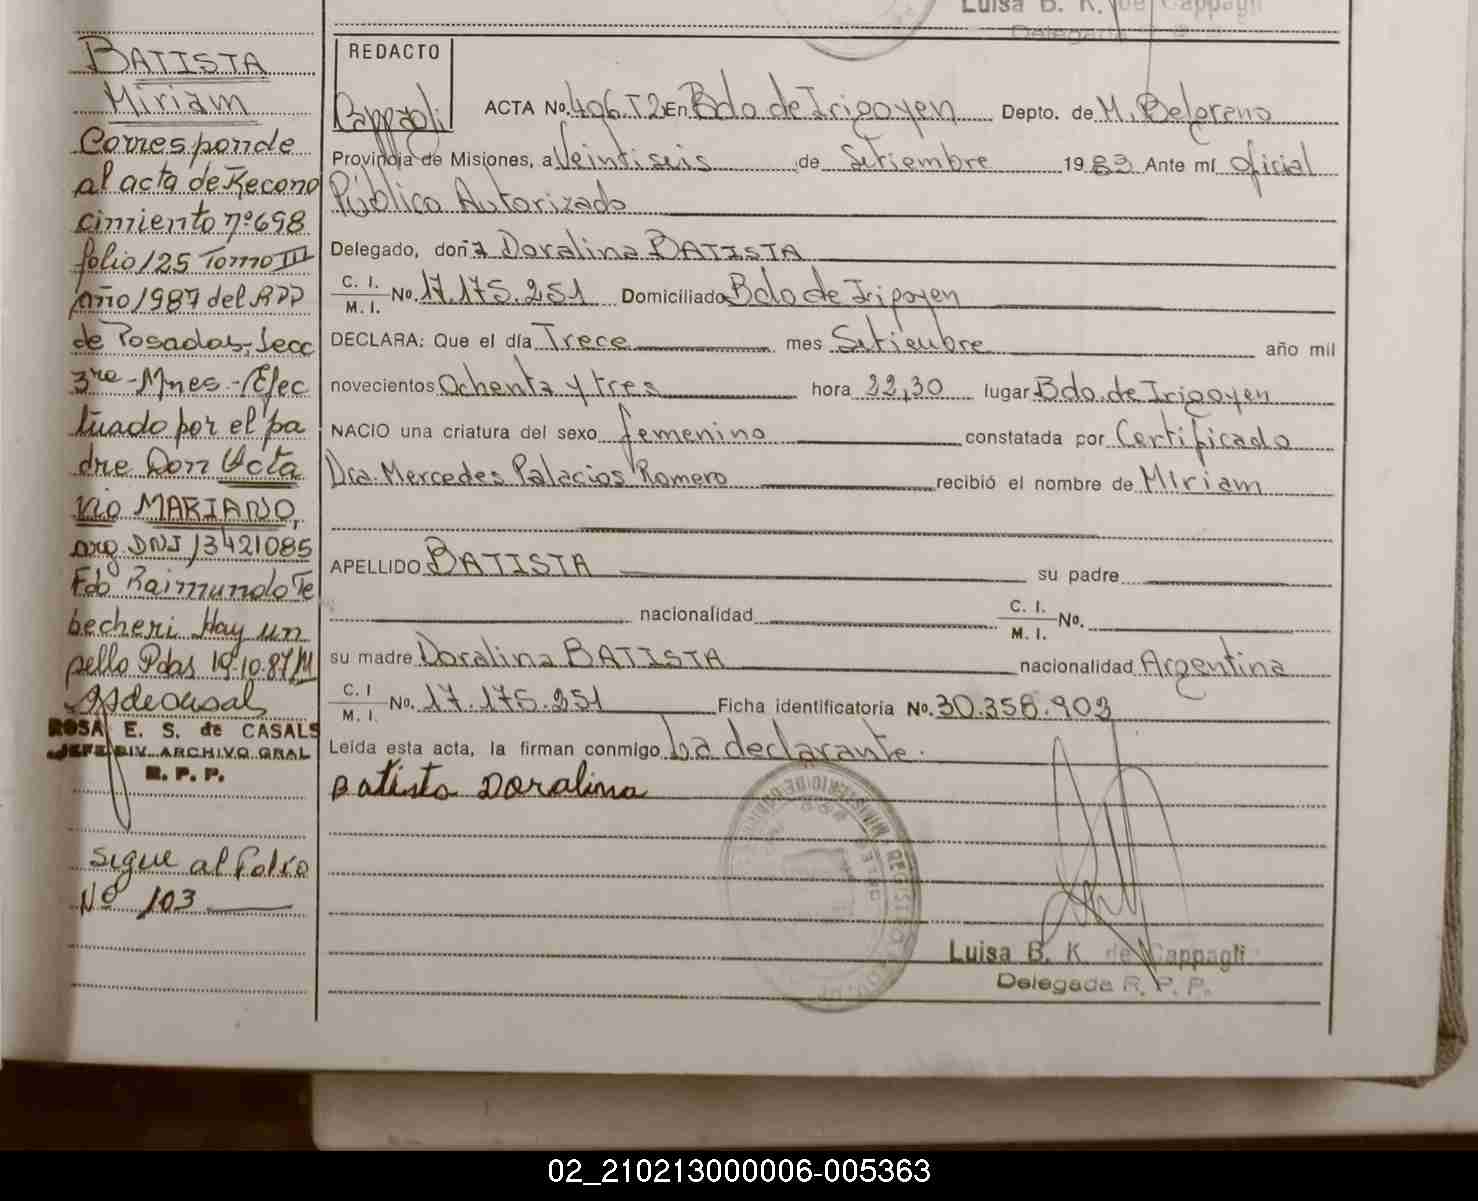 Luisa B. K. de Cappagli
Delegada
BATISTA
Miriam
Corresponde
al acta de Recono
cimiento nº 698
folio 125 Tomo III
año 1987 del RPP
de Posadas, Secc
3ra - Mnes. - Efec
tuado por el pa
dre Don Octa
vio MARIANO,
arg. DNI 13421085
Fdo Raimundo Te
becheri Hay un
sello Pdas 19-10-87
ROSA E. S. de CASALS
JEFE DIV. ARCHIVO GRAL
R. P. P.
sigue al folio
Nº 103
REDACTO
Cappagli
ACTA No. 496 T2 En Bdo de Irigoyen Depto. de M. Belgrano
Provincia de Misiones, a Veintiseis de Setiembre 1983 Ante mí oficial
Público Autorizado
Delegado, doña Doralina BATISTA
C. I.
M. I. No. 17.175.251 Domiciliado Bdo de Irigoyen
DECLARA: Que el día Trece mes Setiembre año mil
novecientos Ochenta y tres hora 22,30 lugar Bdo. de Irigoyen
NACIO una criatura del sexo femenino constatada por Certificado
Dra. Mercedes Palacios Romero recibió el nombre de Miriam
APELLIDO BATISTA su padre
nacionalidad C. I. M. I. No.
su madre Doralina BATISTA nacionalidad Argentina
C. I M. I. No. 17.175.251 Ficha identificatoria No. 30.358.903
Leída esta acta, la firman conmigo La declarante.
Batista Doralina
Luisa B. K. de Cappagli
Delegada R. P. P.
02_210213000006-005363